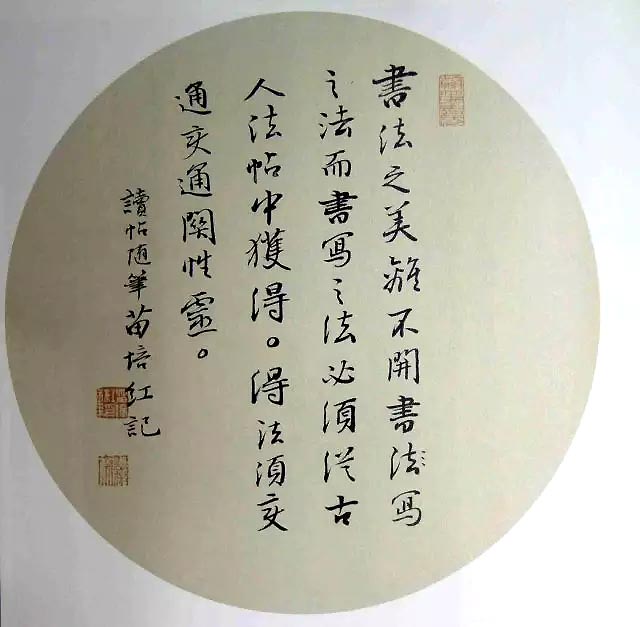 書法之美離不開書法寫
之法而書寫之法必須從古
人法帖中獲得。得法須变
通变通關性靈。
讀帖随筆苗培红記